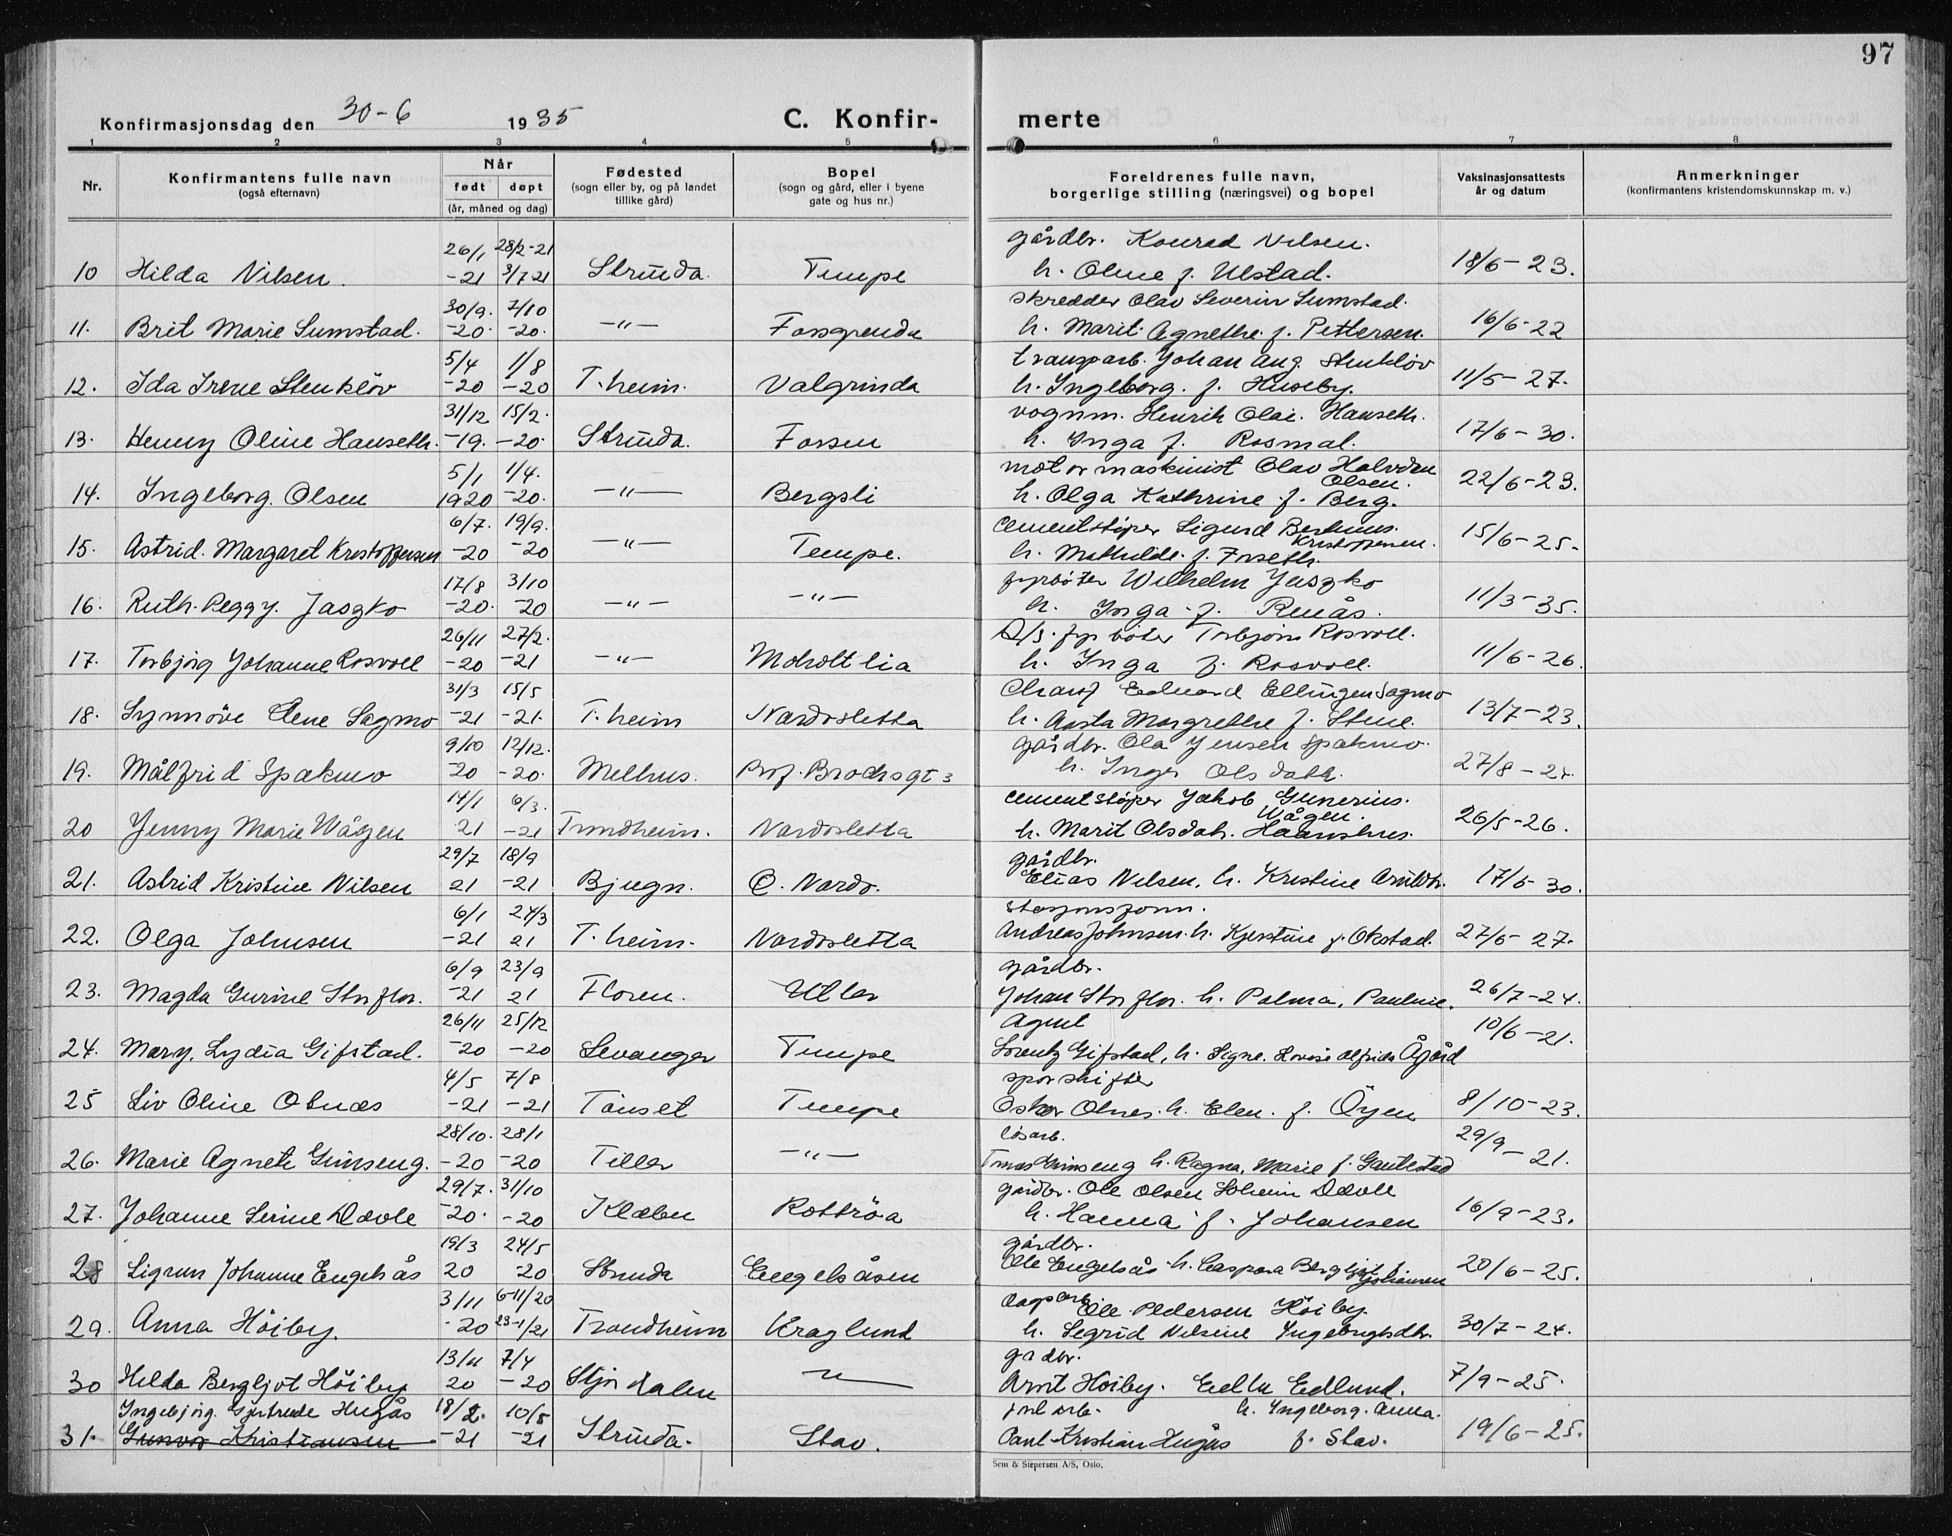 97
Konfirmasjonsdag den 30-6 1935 C. Konfir- merte
1 2 3 4 5 6 7 8
Nr. Konfirmantens fulle navn (også efternavn) Når født døpt (år, måned og dag) Fødested (sogn eller by, og på landet tillike gård) Bopel (sogn og gård, eller i byene gate og hus nr.) Foreldrenes fulle navn, borgerlige stilling (næringsvei) og bopel Vaksinasjonsattests år og datum Anmerkninger (konfirmantens kristendomskunnskap m. v.)
26/1 28/2-21 gårdbr. Konrad Nilsen.
10 Hilda Nilsen. -21 3/7 21 Strinda. Tempe h. Oline f. Ulstad. 18/6-23.
30/9. 7/10 skredder Olav Severin Sumstad.
11. Brit Marie Sumstad. -20. -20. -"- Fossgrenda h. Marit Agnethe f. Pettersen. 16/6-22
5/4 1/8 transparb. Johan Aug. Stenkløv
12. Ida Irene Stenkløv -20 -20 T.heim. Valgrinda h. Ingeborg. f. Huseby. 11/5-27.
31/12 15/2. vognm. Henrik Olai. Hanseth.
13. Henny Oline Hanseth. -19. -20. Strinda. Fossen h. Inga f. Rosmal. 17/6-30.
5/1 1/4. motormaskinist Olav Halvdan Olsen.
14. Ingeborg. Olsen 1920 -20. -"- Bergsli h. Olga Kathrine f. Berg. 22/6-23.
6/7. 19/9. cementstöper Sigurd Kristoffersen.
15. Astrid. Margaret Kristoffersen -20 -20 -"- Tempe. h. Mathilde. f. Forseth. 15/6-25-
17/8 3/10 fyrböter Wilhelm Jaszko
16. Ruth. Peggy. Jaszko -20. -20 -"- -"- h. Inga f. Renås. 11/3-35.
26/11 27/2. fyrböter Torbjörn Rosvoll.
17. Torbjörg Johanne Rosvoll -20 -21 -"- Moholtlia h. Inga f. Rosvoll. 11/6-26.
31/3 15/5 Chauf Edvard Ellingsen Sagmo
18. Synnöve Elene Sagmo -21 -21. T.heim Nardosletta h. Margrethe f. Stene. 13/7-23.
9/10 12/12. gårdbr. Ola Jensen Spakmo.
19. Målfrid Spakmo 20 -20. Melhus. Prof. Brochsgt 3 h. Inger Olsdatt. 27/8-24.
14/1 6/3. cementstöper Jakob Gunerius. Wågen.
20 Jenny Marie Wågen 21 -21 Trondheim. Nardosletta h. Marit Olsdatt. Haanshus. 26/5-26.
29/7 18/9 gårdbr.
21. Astrid Kristine Nilsen 21 -21 Bjugn. Ö. Nardo. Elias Nilsen, h. Kristine 17/6 30.
6/1 24/3 stasjonsform.
22. Olga Johnsen -21 21 T.heim. Nardosletta Andreas Johnsen. h. Kjerstine f. Okstad. 27/6-27.
6/9 23/9 gårdbr.
23. Magda Gurine Storflor. -21 21 Floren. Uller Johan Storflor. h. Palma, Pauline. 26/7-24.
26/11 25/12 Agent
24. Mary. Lydia Gifstad. -20 -20 Levanger Tempe Lorentz Gifstad, h. Signe. Lovise Alfrida Ågård 10/6-21.
4/5 7/8 sporskifter
25 Liv Oline Olnæs -21 -21 Tönset Tempe Oskar Olnes. h. Elen. f. Öyen 8/10-23.
28/10. 28/1 lösarb.
26. Marie Agnete Grinseng. -20 -20 Tiller -"- Grinseng h. Ragna, Marie f. Gautestad 29/9-21.
29/7. 31/10 gårdbr. Ole Olsen Solheim Dævle
27. Johanne Serine Dævle -20. -20 Klæbu Rottröa h. Hanna f. Johansen 16/9-23.
19/3 24/5 gårdbr.
28 Sigrun Johanne Engelsås 20 -20 Strinda Engelsåsen Ole Engelsås h. Caspara Bergljot Johansen 20/6-25.
3/11 6-11/20 dagsarb Ole Pedersen Höiby.
29. Anna Höiby. -20 23-1/21 Trondheim Kraglund h. Segrid Nilsine Ingebrigtsdtr. 30/7-24.
13/11 7/4 gadbr.
30 Hilda Bergljot Höiby 20 -20 Stjørdalen -"- Arnt Höiby. Edlund. 7/9-25
Ingebjörg. Gjertrude Hugås 18/2. 10/5 jorbarb. h. Ingeborg. Anna.
31. Gunvor Kristiansen -21 -21 Strinda. Stav. Paul Kristian Hugås f. Stav. 19/6-25.
Sem & Stenersen A/S, Oslo.